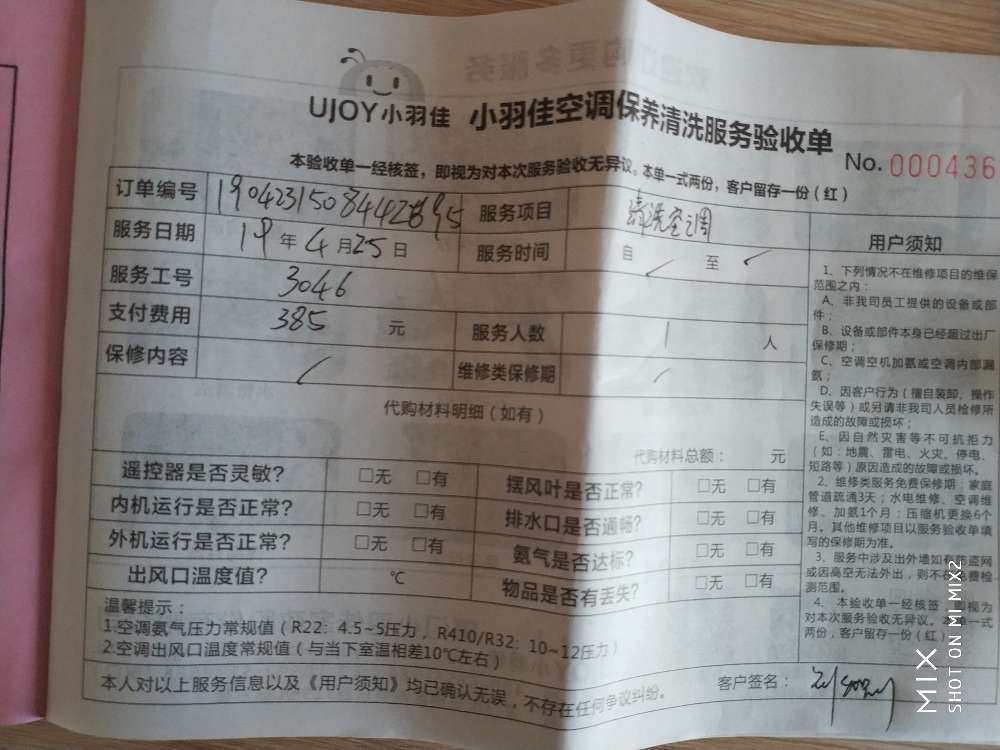 UJOY小羽佳 小羽佳空调保养清洗服务验收单
No. 000436
本验收单一经核签，即视为对本次服务验收无异议。本单一式两份，客户留存一份（红）
订单编号 服务项目 清洗空调
服务日期 19 年 4 月 25 日 服务时间 自 ✓ 至 ✓
服务工号 3046
支付费用 385 元 服务人数 1 人
保修内容 ✓ 维修类保修期 ✓
代购材料明细（如有）
代购材料总额： 元
遥控器是否灵敏？ □无 □有 摆风叶是否正常？ □无 □有
内机运行是否正常？ □无 □有 排水口是否通畅？ □无 □有
外机运行是否正常？ □无 □有 氨气是否达标？ □无 □有
出风口温度值？ ℃ 物品是否有丢失？ □无 □有
温馨提示：
1.空调氨气压力常规值（R22：4.5~5压力，R410/R32：10~12压力）
2.空调出风口温度常规值（与当下室温相差10℃左右）
本人对以上服务信息以及《用户须知》均已确认无误，不存在任何争议纠纷。
客户签名：
用户须知
1、下列情况不在维修项目的维保
范围之内：
A、非我司员工提供的设备或部
件；
B、设备或部件本身已经超过出厂
保修期；
C、空调空机加氨或空调内部漏
氨；
D、因客户行为（擅自装卸、操作
失误等）或另请非我司人员检修所
造成的故障或损坏；
E、因自然灾害等不可抗拒力
（如：地震、雷电、火灾、停电、
短路等）原因造成的故障或损坏。
2、维修类服务免费保修期，家庭
管道疏通3天；水电维修、空调维
修、加氨1个月；压缩机更换6个
月。其他维修项目以服务验收单填
写的保修期为准。
3、服务中涉及出外墙如有防盗网
或因高空无法外出，则不作免费检
测范围。
4、本验收单一经核签，即视为
对本次服务验收无异议。本单一式
两份，客户留存一份（红）
MIX
SHOT ON MI MIX2